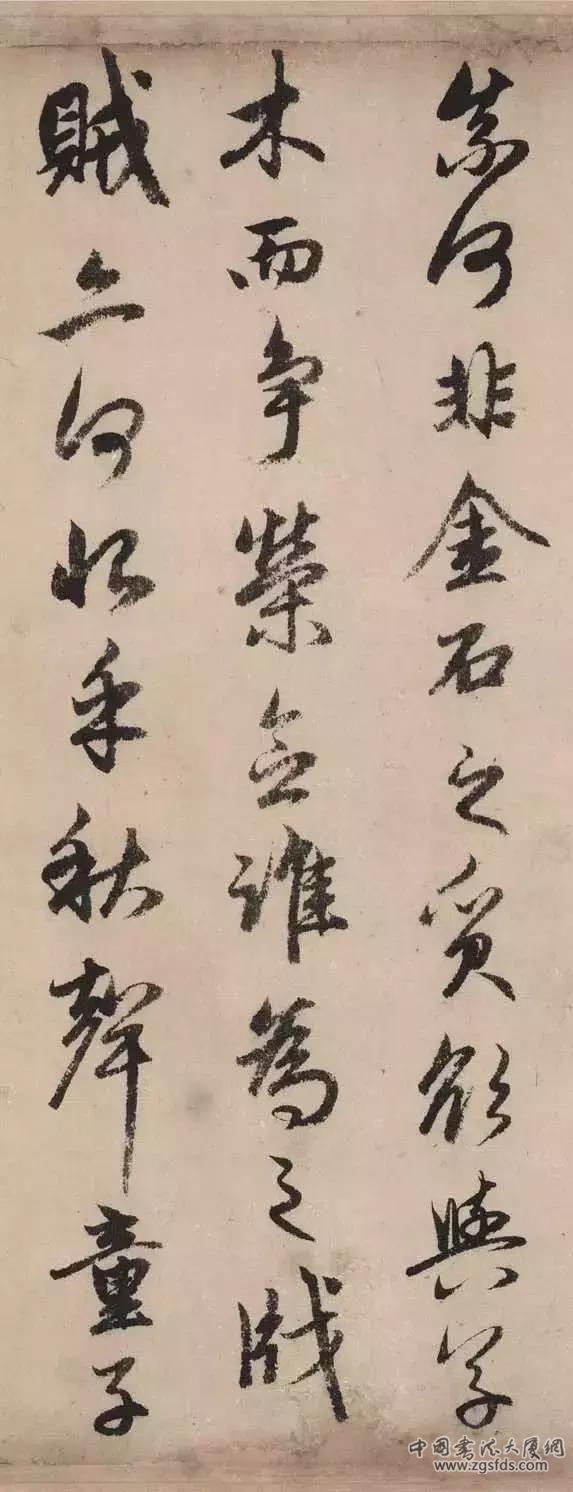 奈何非金石之質欲與草
木而争榮念誰為之戕
賊亦何恨乎秋聲童子
中国书法大厦網
www.zgsfds.com